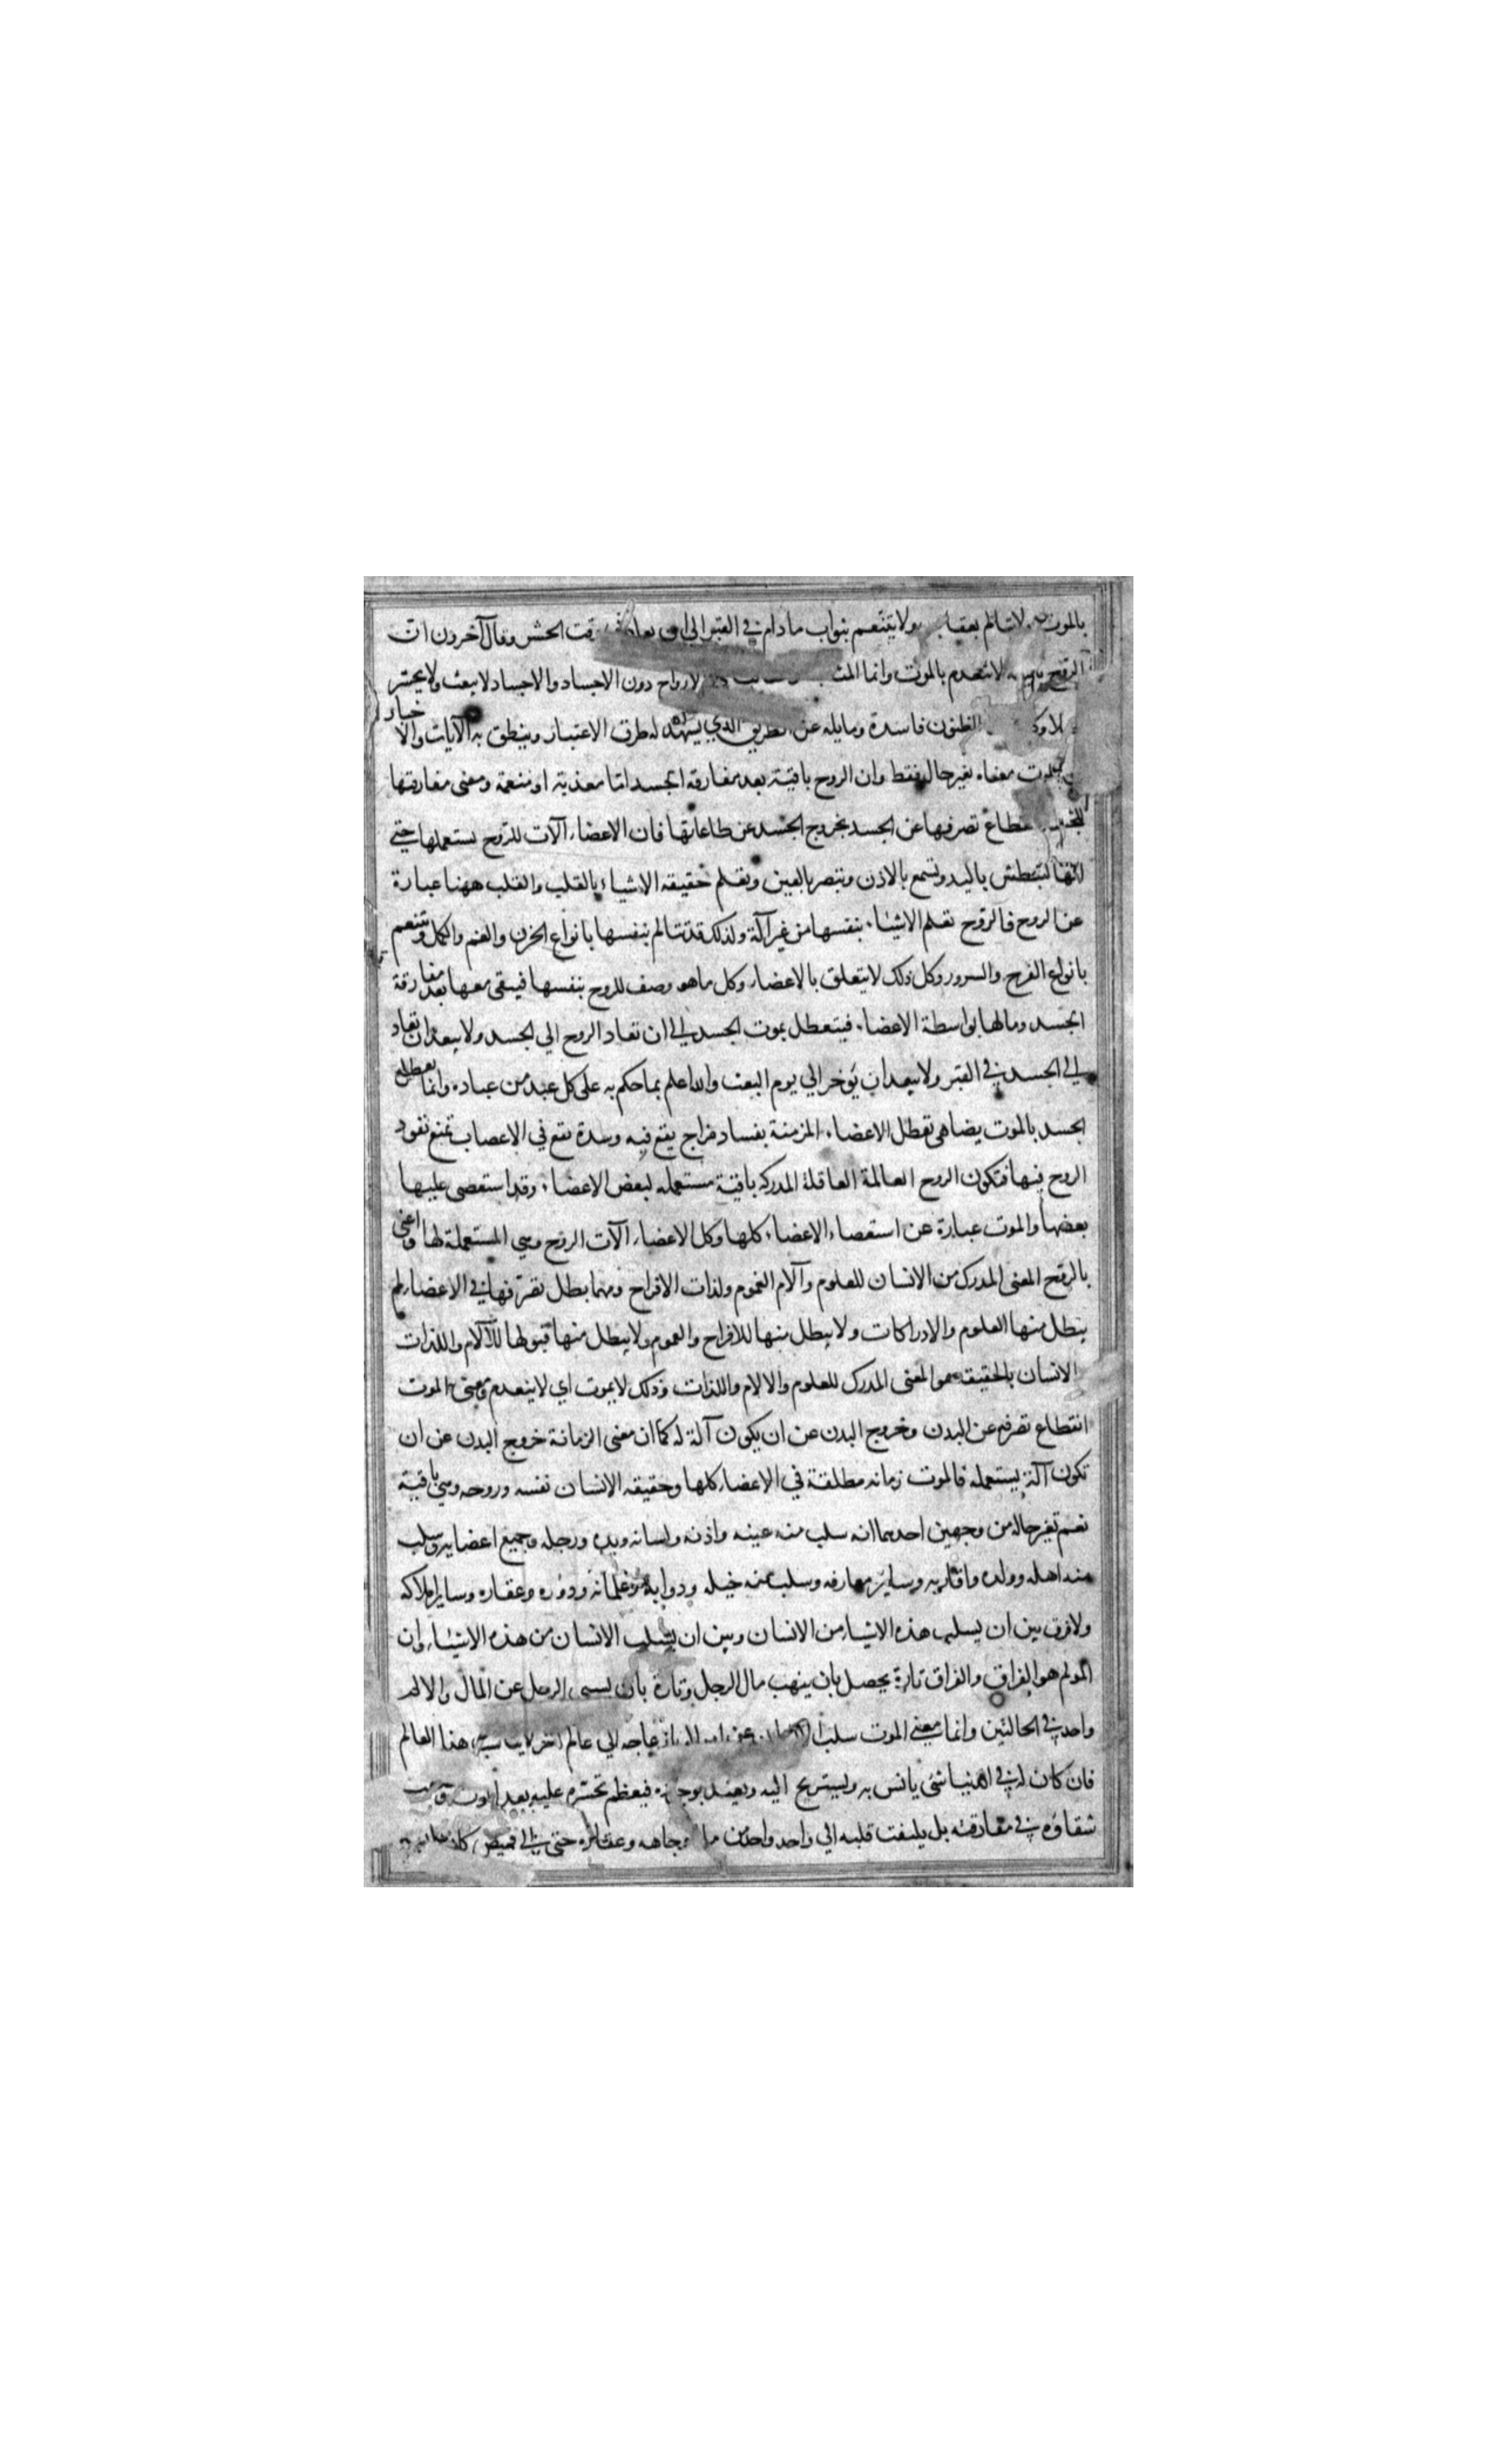 بالموت ولا يتنعم بثواب مادام في القبر الي ان يعاد وقت الحشر وقال آخرون ان
الروح لا تنعدم بالموت وانما المثاب الارواح دون الاجساد والاجساد لا يبعث ولا يحشر
الظنون فاسدة ومايله عن الطريق الذي يشهد له طرق الاعتبار وينطق به الآيات والاخبار
الموت معناه تغير حال فقط وان الروح باقية بعد مفارقة الجسد اما معذبة او منعمة ومعنى مفارقتها
تصرفها عن الجسد بخروج الجسد عن طاعاتها فان الاعضاء آلات للروح يستعملها حتي
انها لتبطش باليد وتسمع بالاذن وتبصر بالعين وتعلم حقيقة الاشياء بالقلب والقلب ههنا عبارة
عن الروح فالروح تعلم الاشياء بنفسها من غير آلة ولذلك قد تتالم بنفسها بانواع الحزن والغم والكمد وتتنعم
بانواع الفرح والسرور وكل ذلك لا يتعلق بالاعضاء وكل ما هو وصف للروح بنفسها فيبقى معها بعد مفارقة
الجسد وما لها بواسطة الاعضاء فيتعطل بموت الجسد الي ان تعاد الروح الي الجسد ولا يبعد ان تعاد
الي الجسد في القبر ولا يبعد ان يؤخر الي يوم البعث والله اعلم بما حكم به على كل عبد من عباده وانما تعطل
الجسد بالموت يضاهي تعطل الاعضاء المزمنة بفساد مزاج يقع فيه وسدة تقع في الاعصاب تمنع نفوذ
الروح فيها فتكون الروح العالمة العاقلة المدركه باقية مستعمله لبعض الاعضاء وقد استعصى عليها
بعضها والموت عبارة عن استعصاء الاعضاء كلها وكل الاعضاء آلات الروح وهي المستعملة لها واعني
بالروح المعنى المدرك من الانسان للعلوم وآلام الغموم ولذات الافراح ومهما بطل تصرفها في الاعضاء لم
يبطل منها العلوم والادراكات ولا يبطل منها للافراح والغموم ولا يبطل منها قبولها للآلام واللذات
الانسان بالحقيقه هو المعنى المدرك للعلوم والالام واللذات وذلك لا يموت اي لا ينعدم ومعنى الموت
انقطاع تصرفه عن البدن وخروج البدن عن ان يكون آلة له كما ان معنى الزمانة خروج البدن عن ان
تكون آلة يستعمله فالموت زمانه مطلقة في الاعضاء كلها وحقيقه الانسان نفسه وروحه وهي باقية
نعم تغير حاله من وجهين احدهما انه سلب منه عينه واذنه ولسانه ويده ورجله وجميع اعضايه وسلب
منه اهله وولده واقاربه وساير معارفه وسلب منه خيله ودوابه وغلمانه ودوره وعقاره وساير املاكه
ولا فرق بين ان يسلب هذه الاشياء من الانسان وبين ان يسلب الانسان من هذه الاشياء وان
المولم هو الفراق والفراق تارة يحصل بان ينهب مال الرجل وتارة بان يسبى الرجل عن المال والالم
واحد في الحالتين وانما معنى الموت سلب الي عالم اخر لا يناسب هذا العالم
فان كان له في الدنيا شئ يانس به ويستريح اليه ويعتد بوجوده فيعظم تحسره عليه بعد الموت
شقاؤه في مفارقته بل يلتفت قلبه الي واحد واحد من وجاهه وعقاره حتى الي قميص كان